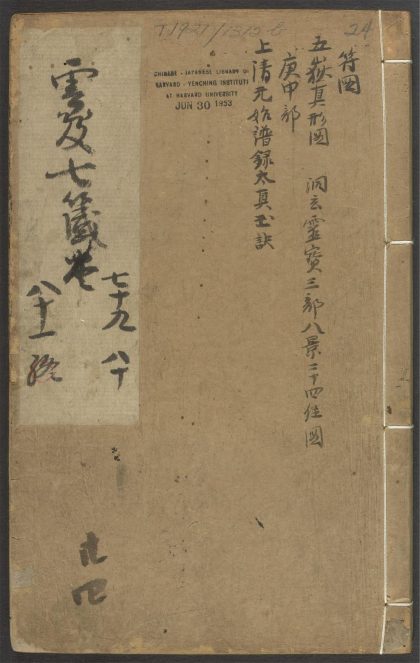 T1921/1315
24
符図
五嶽真形圖 洞玄靈寳三部八景二十四住圖
庚申部
上清元始譜録太真玉訣
CHINESE - JAPANESE LIBRARY OF
HARVARD - YENCHING INSTITUTE
AT HARVARD UNIVERSITY
JUN 30 1953
雲笈七籤卷
七十九 八十
八十一 終